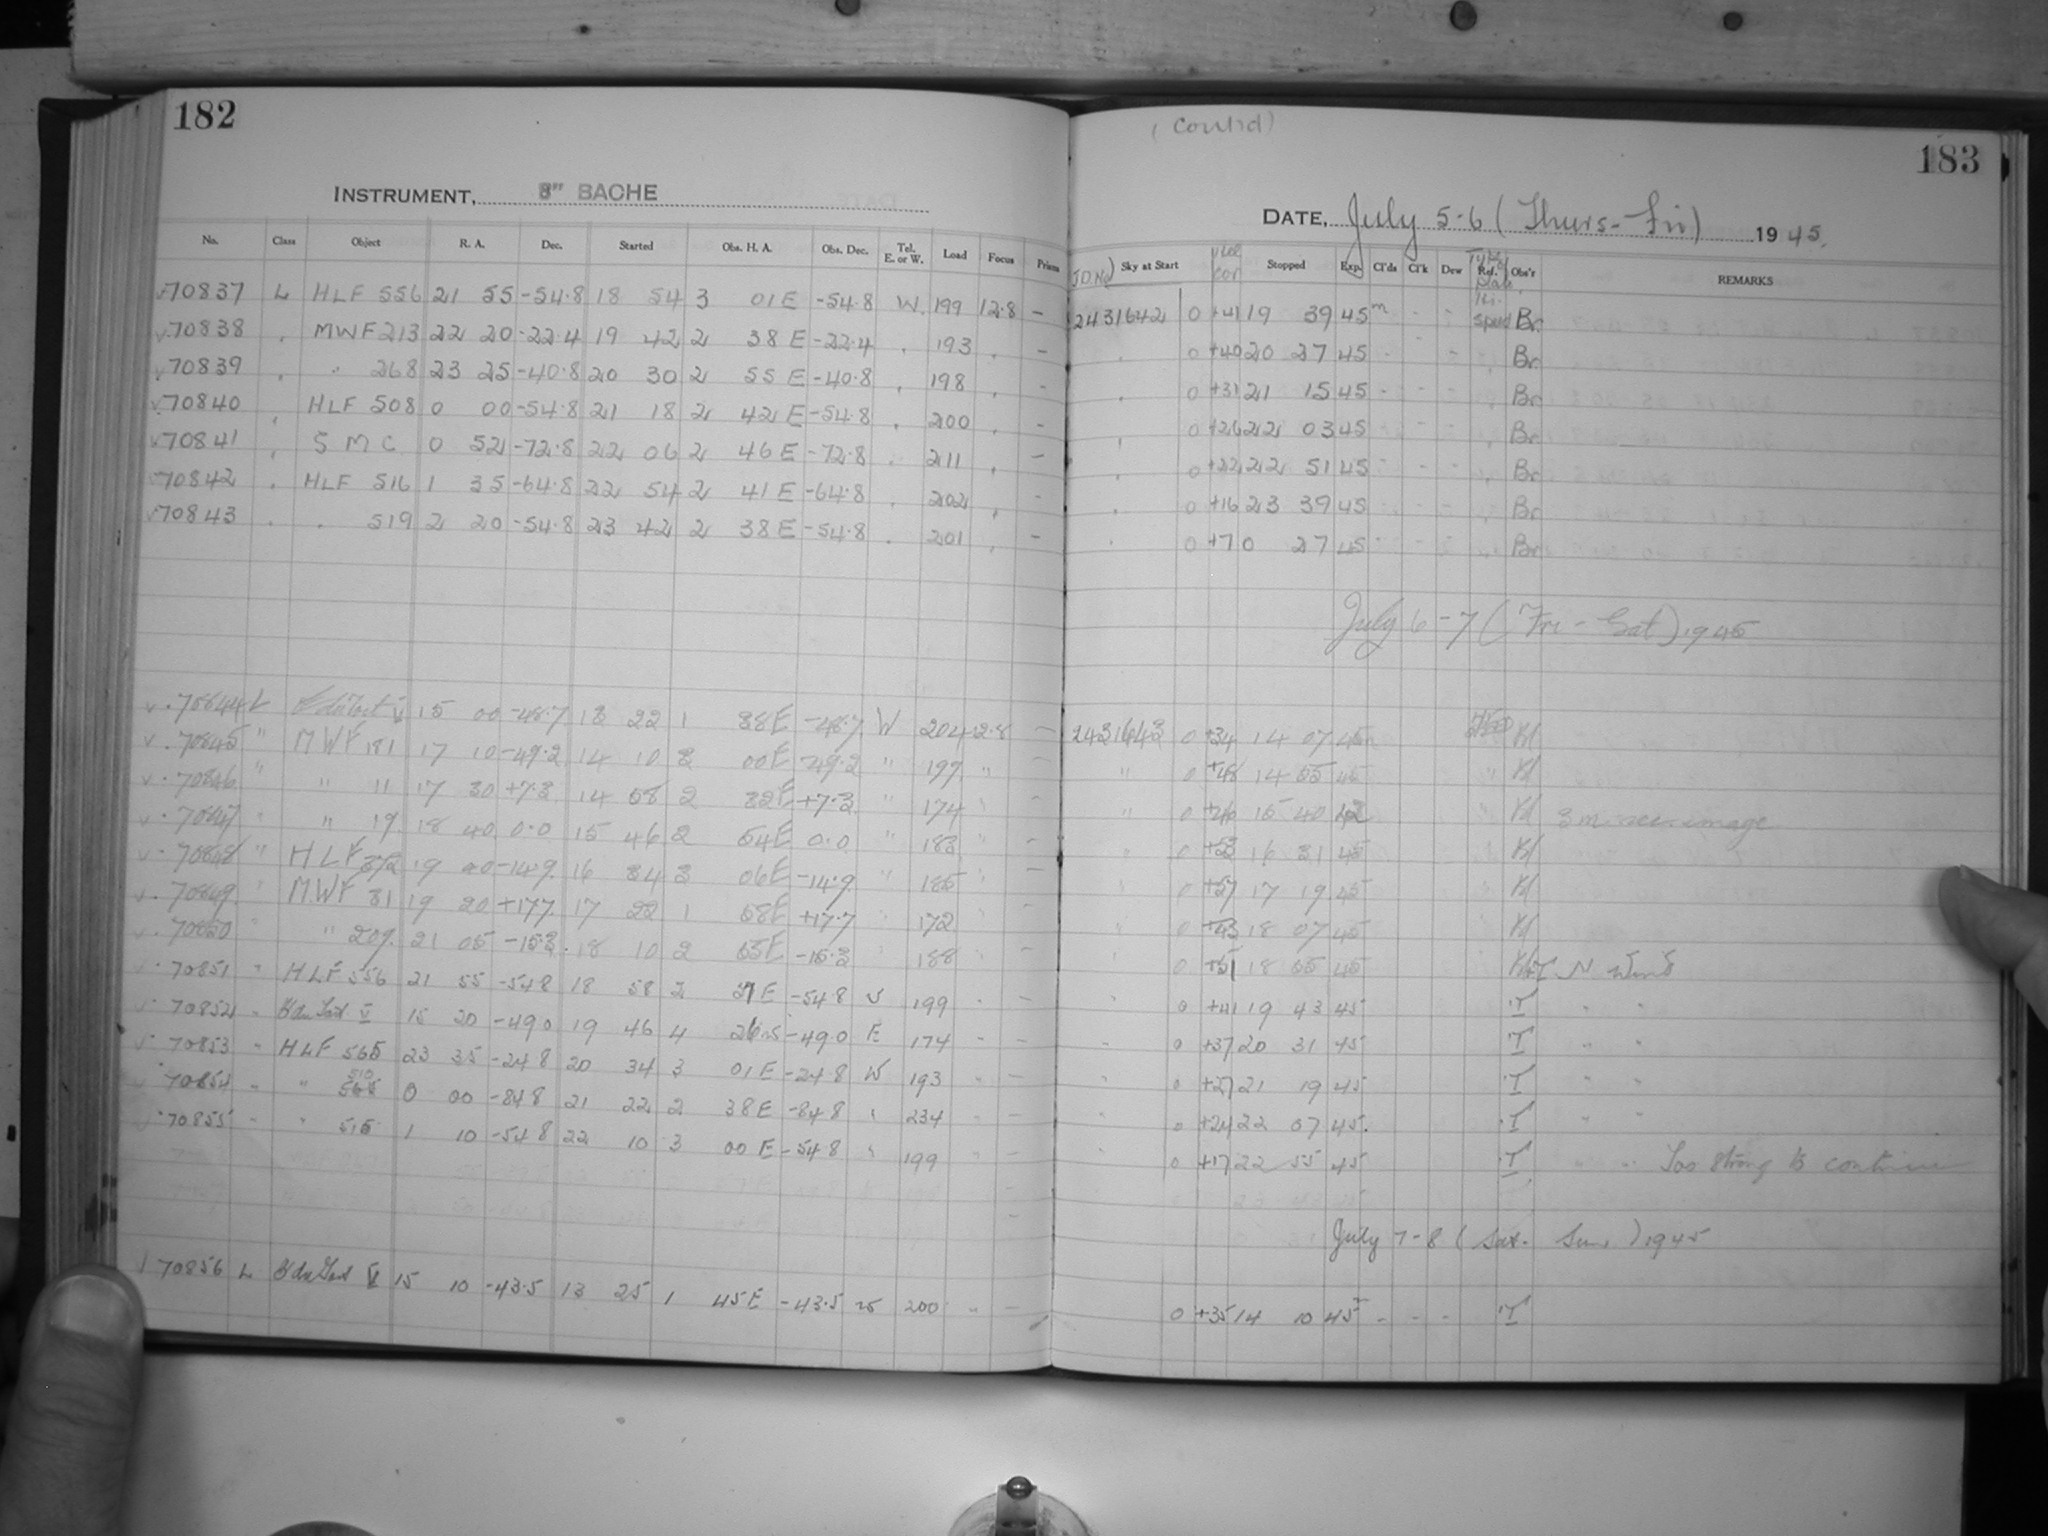 182
INSTRUMENT, 8" BACHE
No. Class Object R. A. Dec. Started Obs. H. A. Obs. Dec. Tel. E. or W. Load Focus Prism
70837 L HLF 556 21 55 -54.8 18 54 3 01 E -54.8 W. 199 12.8 -
70838 " MWF 213 22 20 -22.4 19 42 2 38 E -22.4 " 193 " -
70839 " " 268 23 25 -40.8 20 30 2 55 E -40.8 " 198 " -
70840 " HLF 508 0 00 -54.8 21 18 2 42 E -54.8 " 200 " -
70841 " S M C 0 52 -72.8 22 06 2 46 E -72.8 " 211 " -
70842 " HLF 516 1 35 -64.8 22 54 2 41 E -64.8 " 202 " -
70843 " " 519 2 20 -54.8 23 42 2 38 E -54.8 " 201 " -
70844 L V 15 00 -48.7 13 22 1 38E -48.7 W 204 12.8 -
70845 " MWF 181 17 10 -49.2 14 10 3 00E -49.2 " 197 " -
70846 " " 11 17 30 +7.3 14 58 2 32E +7.3 " 174 " -
70847 " " 19 18 40 0.0 15 46 2 54E 0.0 " 183 " -
70848 " HLF 372 19 40 -14.9 16 34 3 06E -14.9 " 185 " -
70849 " MWF 31 19 20 +17.7 17 22 1 58E +17.7 " 172 " -
70850 " " 209 21 05 -15.3 18 10 2 53E -15.3 " 188 " -
70851 " HLF 556 21 55 -54.8 18 58 2 E -54.8 199 " -
70852 " V 15 20 -49.0 19 46 4 26 -49.0 E 174 " -
70853 " HLF 565 23 35 -24.8 20 34 3 01 E -24.8 W 193 " -
70854 " " 510 0 00 -84.8 21 22 2 38 E -84.8 " 234 " -
70855 " " 515 1 10 -54.8 22 10 3 00 E -54.8 " 199 " -
70856 L V 15 10 -43.5 13 25 1 45 E -43.5 200 " -
(Cont'd)
183
DATE, July 5-6 (Thurs-Fri) 1945.
J.D. No Sky at Start Stopped Exp. Cl'ds Cl'k Dew Ref. Plate Obs'r REMARKS
2431642 0 +41 19 39 45m - - Hi. speed Br
" 0 +40 20 27 45 - - " Br
" 0 +31 21 15 45 - - " Br
" 0 +26 22 03 45 - - " Br
" 0 +22 22 51 45 - - " Br
" 0 +16 23 39 45 - - " Br
" 0 +7 0 27 45 - - " Br
July 6-7 (Fri-Sat) 1945
2431643 0 +34 14 07 45m Kl
" 0 +48 14 55 45 " Kl
" 0 15 40 42 " Kl 3m image
" 0 +53 16 31 45 " Kl
" 0 +57 17 19 45 " Kl
" 0 +43 18 07 45 " Kl
0 +51 18 55 45 " N wind
" 0 +41 19 43 45 T " "
" 0 +37 20 31 45 T " "
" 0 +27 21 19 45 T " "
" 0 +24 22 07 45. T "
" 0 +17 22 55 45 T " " Too strong to continue
July 7-8 (Sat. Sun.) 1945
0 +35 14 10 45 - - - T